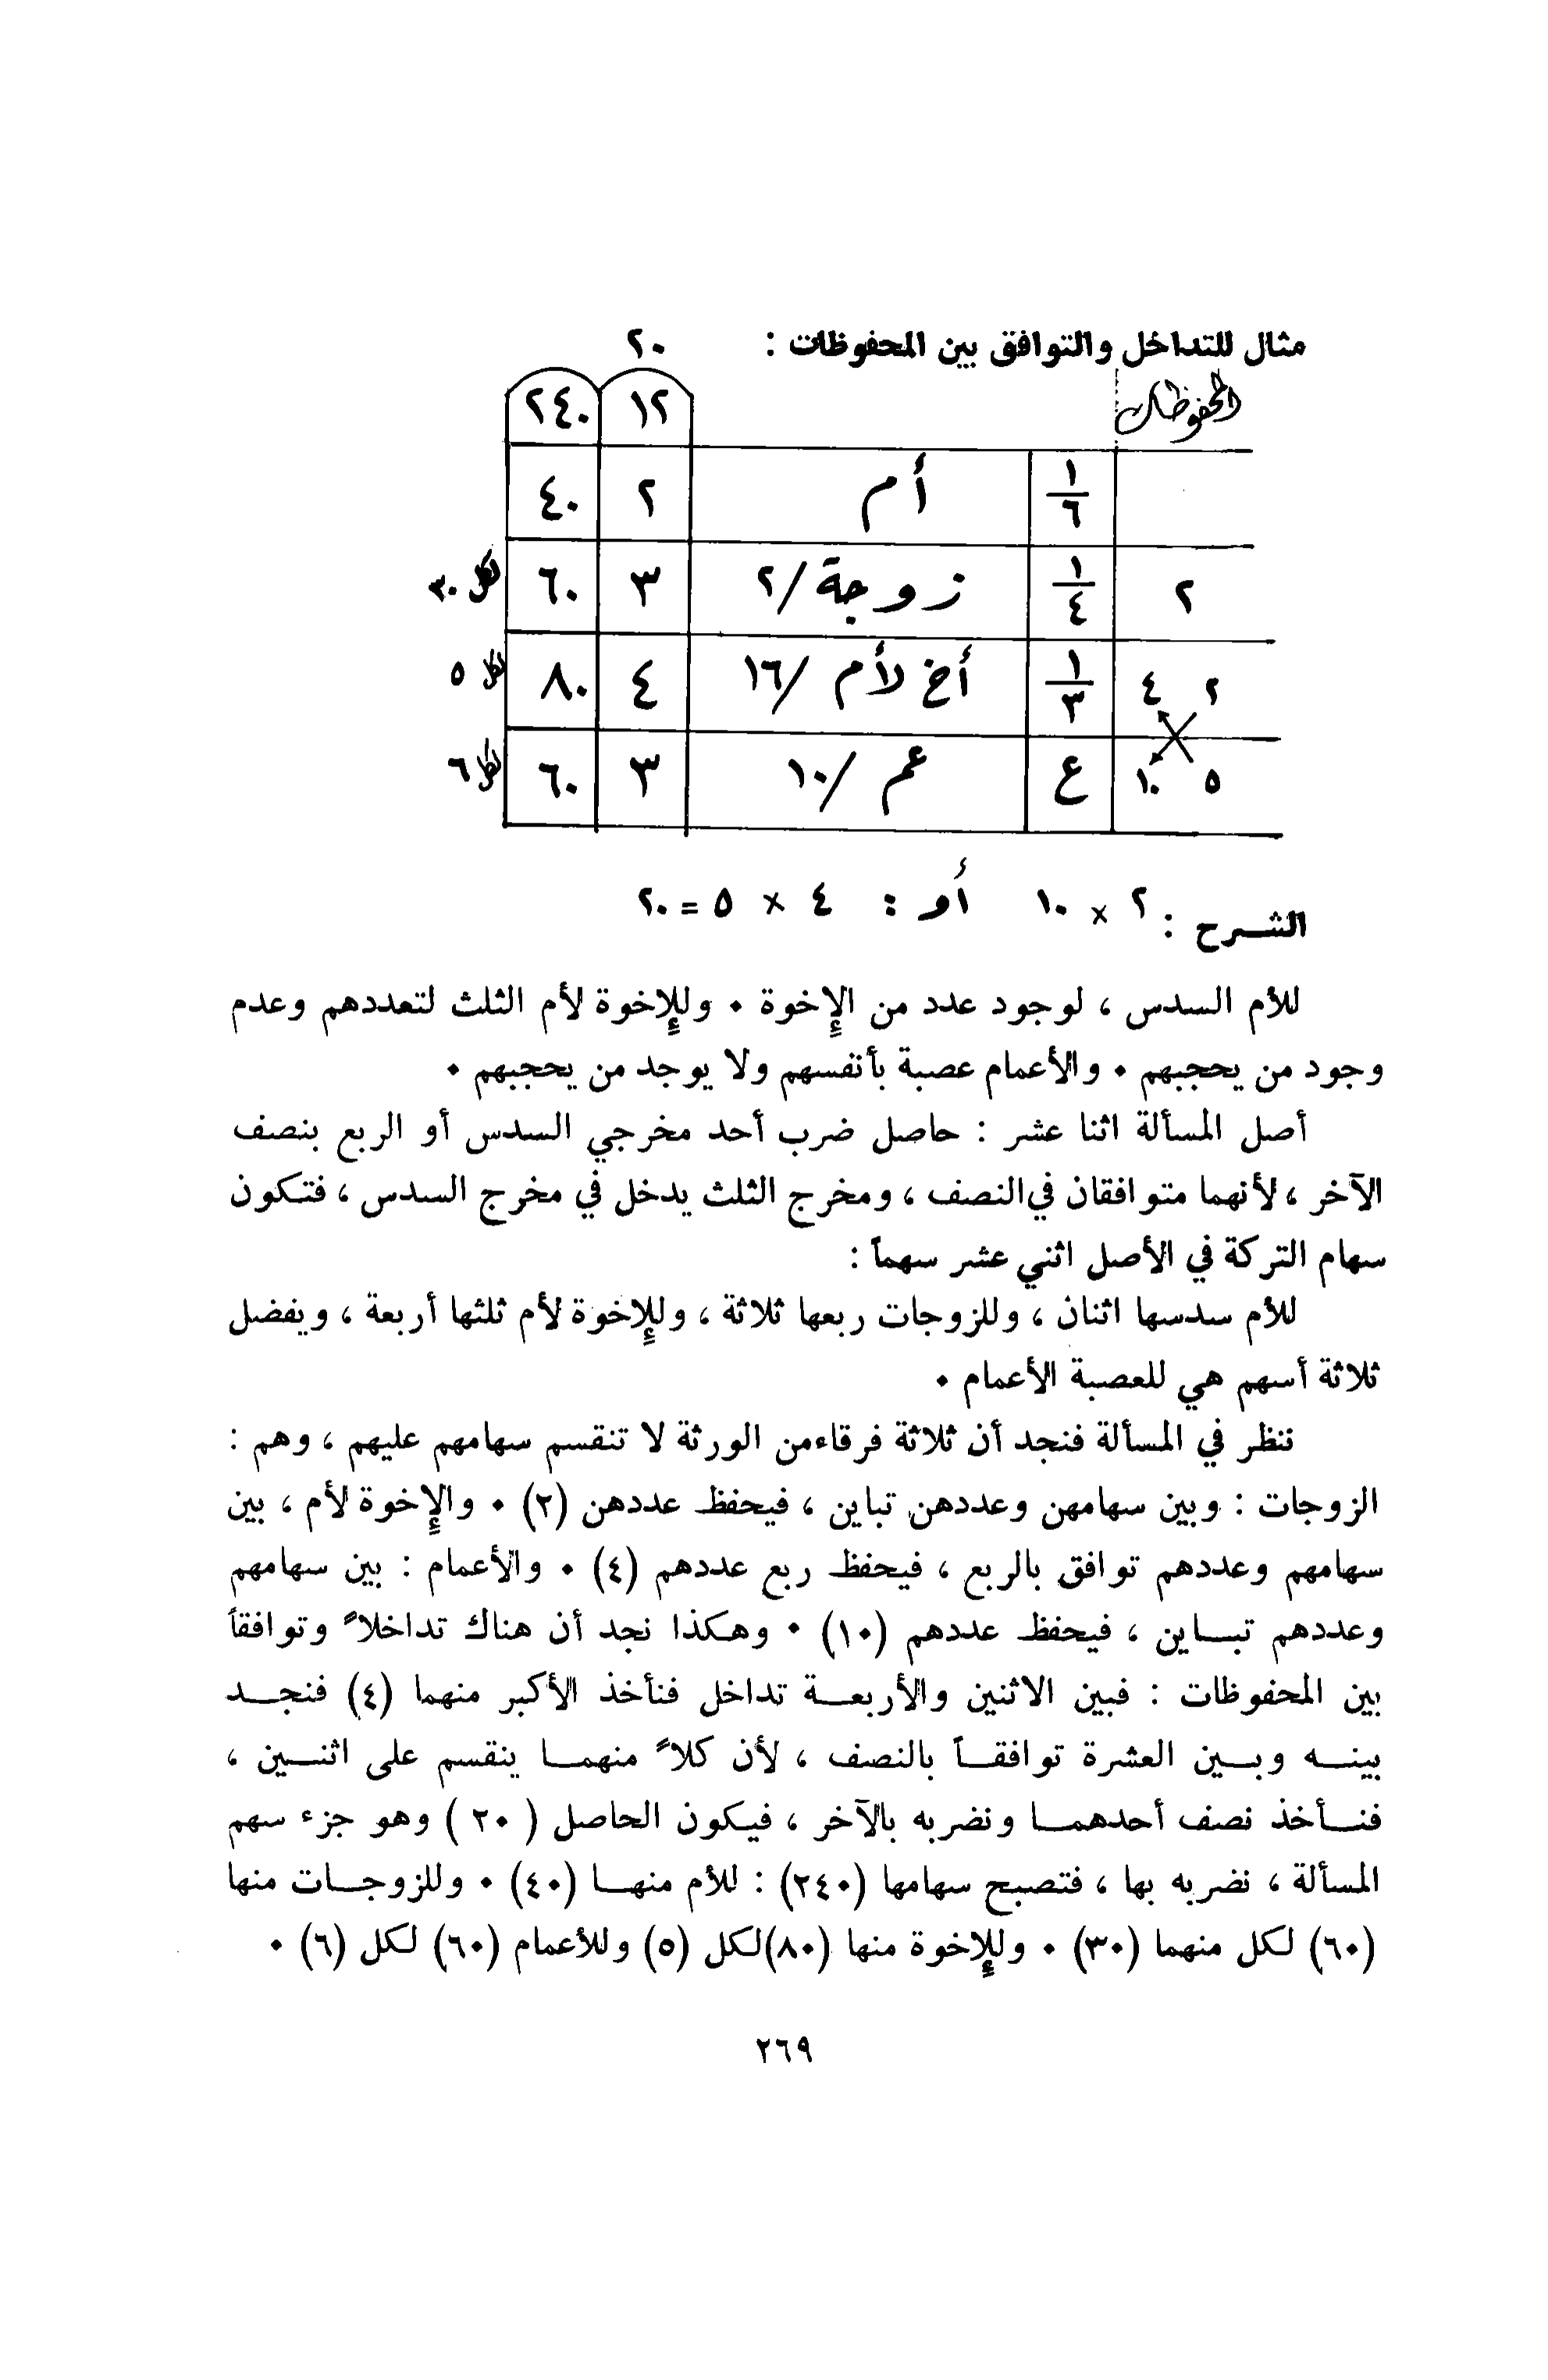 مثال للتداخل والتوافق بين المحفوظات :
٢٠
المحفوظات ١٢ ٢٤٠
١/٦ أم ٢ ٤٠
٢ ١/٤ زوجة /٢ ٣ ٦٠ لكل ٣٠
٢ ٤ ١/٣ أخ لأم /١٦ ٤ ٨٠ لكل ٥
٥ ١٠ ع عم /١٠ ٣ ٦٠ لكل ٦
الشـرح : ٢ × ١٠ أو : ٤ × ٥ = ٢٠
للأم السدس ، لوجود عدد من الإخوة ٠ وللإخوة لأم الثلث لتعددهم وعدم
وجود من يحجبهم ٠ والأعمام عصبة بأنفسهم ولا يوجد من يحجبهم ٠
أصل المسألة اثنا عشر : حاصل ضرب أحد مخرجي السدس أو الربع بنصف
الآخر ، لأنهما متوافقان في النصف ، ومخرج الثلث يدخل في مخرج السدس ، فتكون
سهام التركة في الأصل اثني عشر سهماً :
للأم سدسها اثنان ، وللزوجات ربعها ثلاثة ، وللإخوة لأم ثلثها أربعة ، ويفضل
ثلاثة أسهم هي للعصبة الأعمام ٠
ننظر في المسألة فنجد أن ثلاثة فرقاء من الورثة لا تنقسم سهامهم عليهم ، وهم :
الزوجات : وبين سهامهن وعددهن تباين ، فيحفظ عددهن (٢) ٠ والإخوة لأم ، بين
سهامهم وعددهم توافق بالربع ، فيحفظ ربع عددهم (٤) ٠ والأعمام : بين سهامهم
وعددهم تبـاين ، فيحفظ عددهم (١٠) ٠ وهكذا نجد أن هناك تداخلاً وتوافقاً
بين المحفوظات : فبين الاثنين والأربعـة تداخل فنأخذ الأكبر منهما (٤) فنجـد
بينـه وبـين العشرة توافقـاً بالنصف ، لأن كلاً منهمـا ينقسم على اثنـين ،
فنـأخذ نصف أحدهمـا ونضربه بالآخر ، فيكون الحاصل ( ٢٠ ) وهو جزء سهم
المسألة ، نضربه بها ، فتصبح سهامها (٢٤٠) : للأم منهـا (٤٠) ٠ وللزوجـات منها
(٦٠) لكل منهما (٣٠) ٠ وللإخوة منها (٨٠) لكل (٥) وللأعمام (٦٠) لكل (٦) ٠
٢٦٩